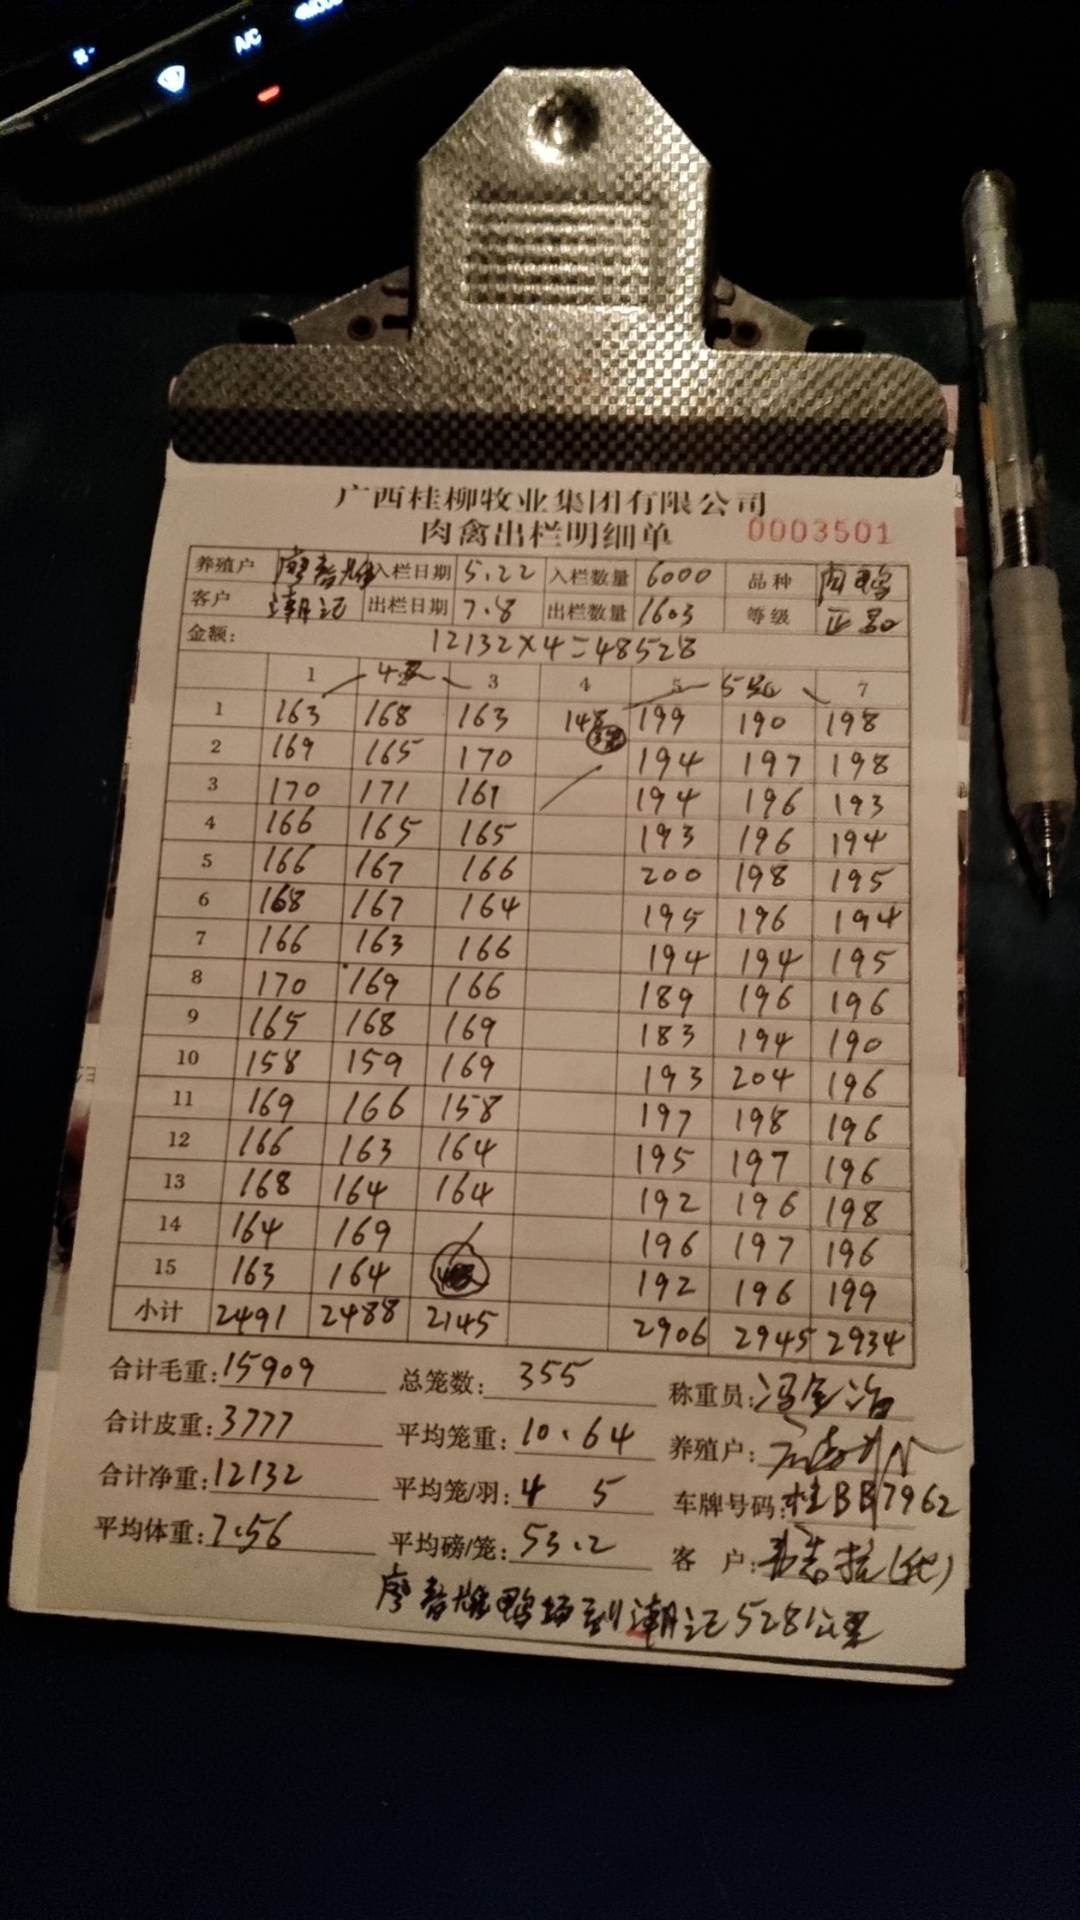 A/C
广西桂柳牧业集团有限公司
肉禽出栏明细单 0003501
养殖户 廖春雄 入栏日期 5.22 入栏数量 6000 品种 肉鸭
客户 潮记 出栏日期 7.8 出栏数量 1603 等级 正品
金额: 12132×4=48528
1 3 4 5 7
1 163 168 163 148 199 190 198
2 169 165 170 194 197 198
3 170 171 161 194 196 193
4 166 165 165 193 196 194
5 166 167 166 200 198 195
6 168 167 164 195 196 194
7 166 163 166 194 194 195
8 170 169 166 189 196 196
9 165 168 169 183 194 190
10 158 159 169 193 204 196
11 169 166 158 197 198 196
12 166 163 164 195 197 196
13 168 164 164 192 196 198
14 164 169 196 197 196
15 163 164 192 196 199
小计 2491 2488 2145 2906 2945 2934
合计毛重: 15909 总笼数: 355 称重员:
合计皮重: 3777 平均笼重: 10.64 养殖户:
合计净重: 12132 平均笼/羽: 4 5 车牌号码: 桂BB7962
平均体重: 7.56 平均磅/笼: 53.2 客 户:
廖春雄鸭场到潮记528公里